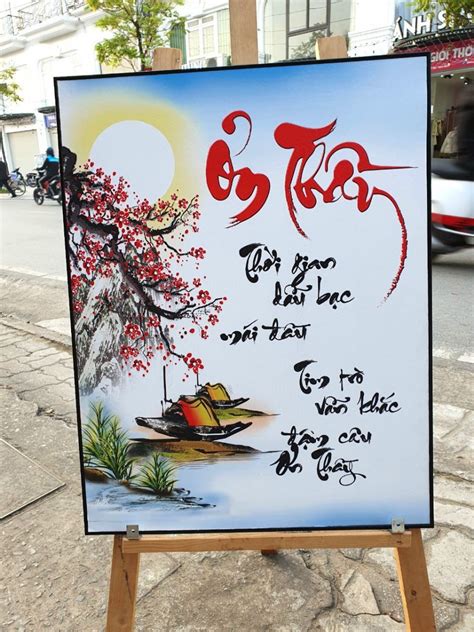 ÁNH S
GIỚI THỜ
Ơn Thầy
Thời gian
dẫu bạc
mái đầu
Tim trò
vẫn khắc
đậm câu
Ơn Thầy